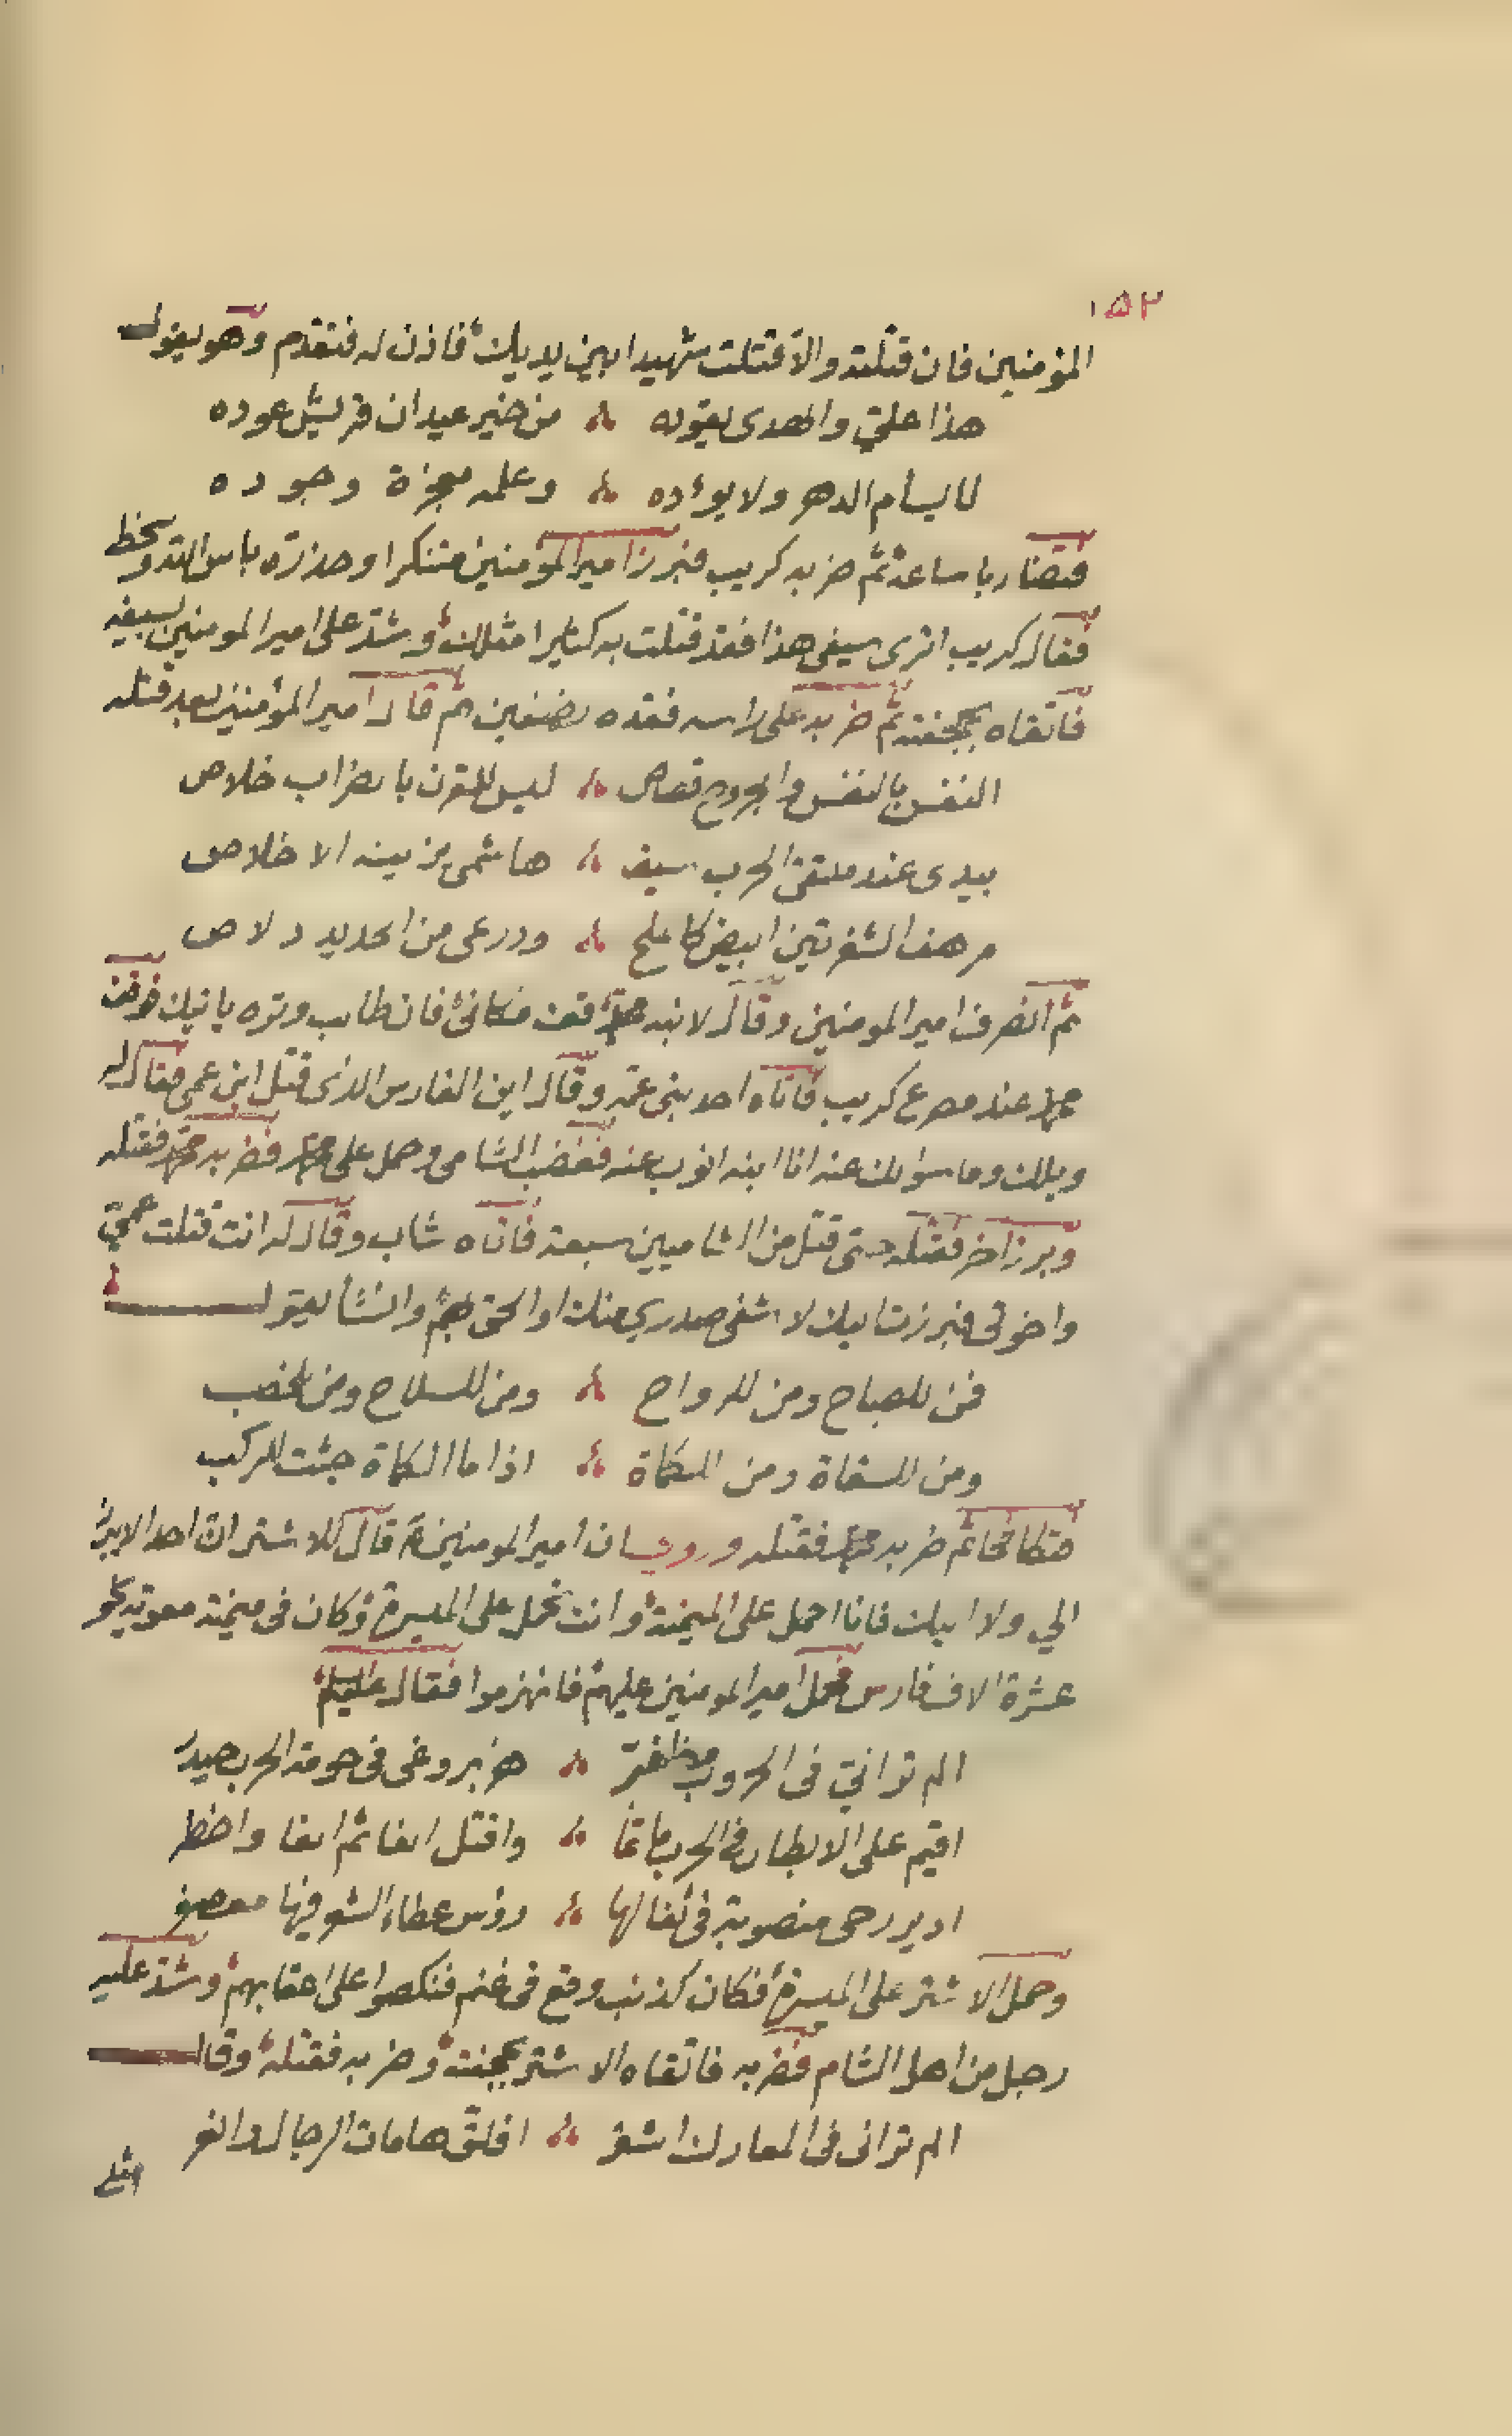 ١٥٢
المؤمنين فان قتلته والا قتلت شهيدا بين يديك فاذن له فتقدم وهو يقول
هذا علي والهدى يقوده من خير عيدان قريش عوده
لا يسأم الدهر ولا يؤده وعلمه معجزة وجوده
فتضاربا ساعة ثم ضربه كريب فبرز امير المؤمنين متنكرا وحذره باس الله وسخطه
فقال كريب اترى سيفى هذا فقد قتلت به كثيرا مثلك وشد على امير المومنين بسيفه
فاتقاه بحجفته ثم ضربه على راسه فقده نصفين ثم قال امير المؤمنين بعد قتله
النفس بالنفس والجروح قصاص ليس للقرن بالضراب خلاص
بيدى عند ملتقى الحرب سيف هاشمى يزينه الاخلاص
مرهف الشفرتين ابيض كالملح ودرعى من الحديد دلاص
ثم انصرف امير المومنين وقال لابنه محمد قف مكانى فان طالب وتره ياتيك فوقف
محمد عند مصرع كريب فاتاه احد بنى عمه وقال اين الفارس الذى قتل ابن عمى فقال له
ويلك وما سؤلك عنه انا ابنه انوب عنه فغضب الشامى وحمل على محمد فضربه محمد فقتله
وبرز اخر فقتله حتى قتل من الشاميين سبعة فاتاه شاب وقال له انت قتلت عمي
واخوتى فبرزت اليك لاشفى صدرى منك او الحق بهم وانشأ يقول
فمن للصباح ومن للرواح ومن للسلاح ومن للخطب
ومن للسقاة ومن للكماة اذا ما الكماة جثت للركب
فتكافحا ثم ضربه محمد فقتله وروى ان امير المومنين قال للاشتر ان احد لا يبرز
الي ولا اليك فانا احمل على الميمنة وانت تحمل على الميسرة وكان فى ميمنة معوية نحو
عشرة الاف فارس فحمل امير المومنين عليهم فانهزموا فقال
الم تر اني فى الحروب مظفر هزبر وغى فى حومة الحرب حيدر
اقيم على الابطال فى الحرب ماتما واقتل الفا ثم الفا واخطر
ادير رحى منصوبة فى ثفالها رؤس عطاء الشو فيها معصفر
وحمل الاشتر على الميسرة فكان كذئب وقع فى غنم فنكصوا على اعقابهم وشد عليه
رجل من اهل الشام فضربه فاتقاه الاشتر بحجفته وضربه فقتله وقال
الم ترانى فى المعارك اشتر افلق هامات الرجال